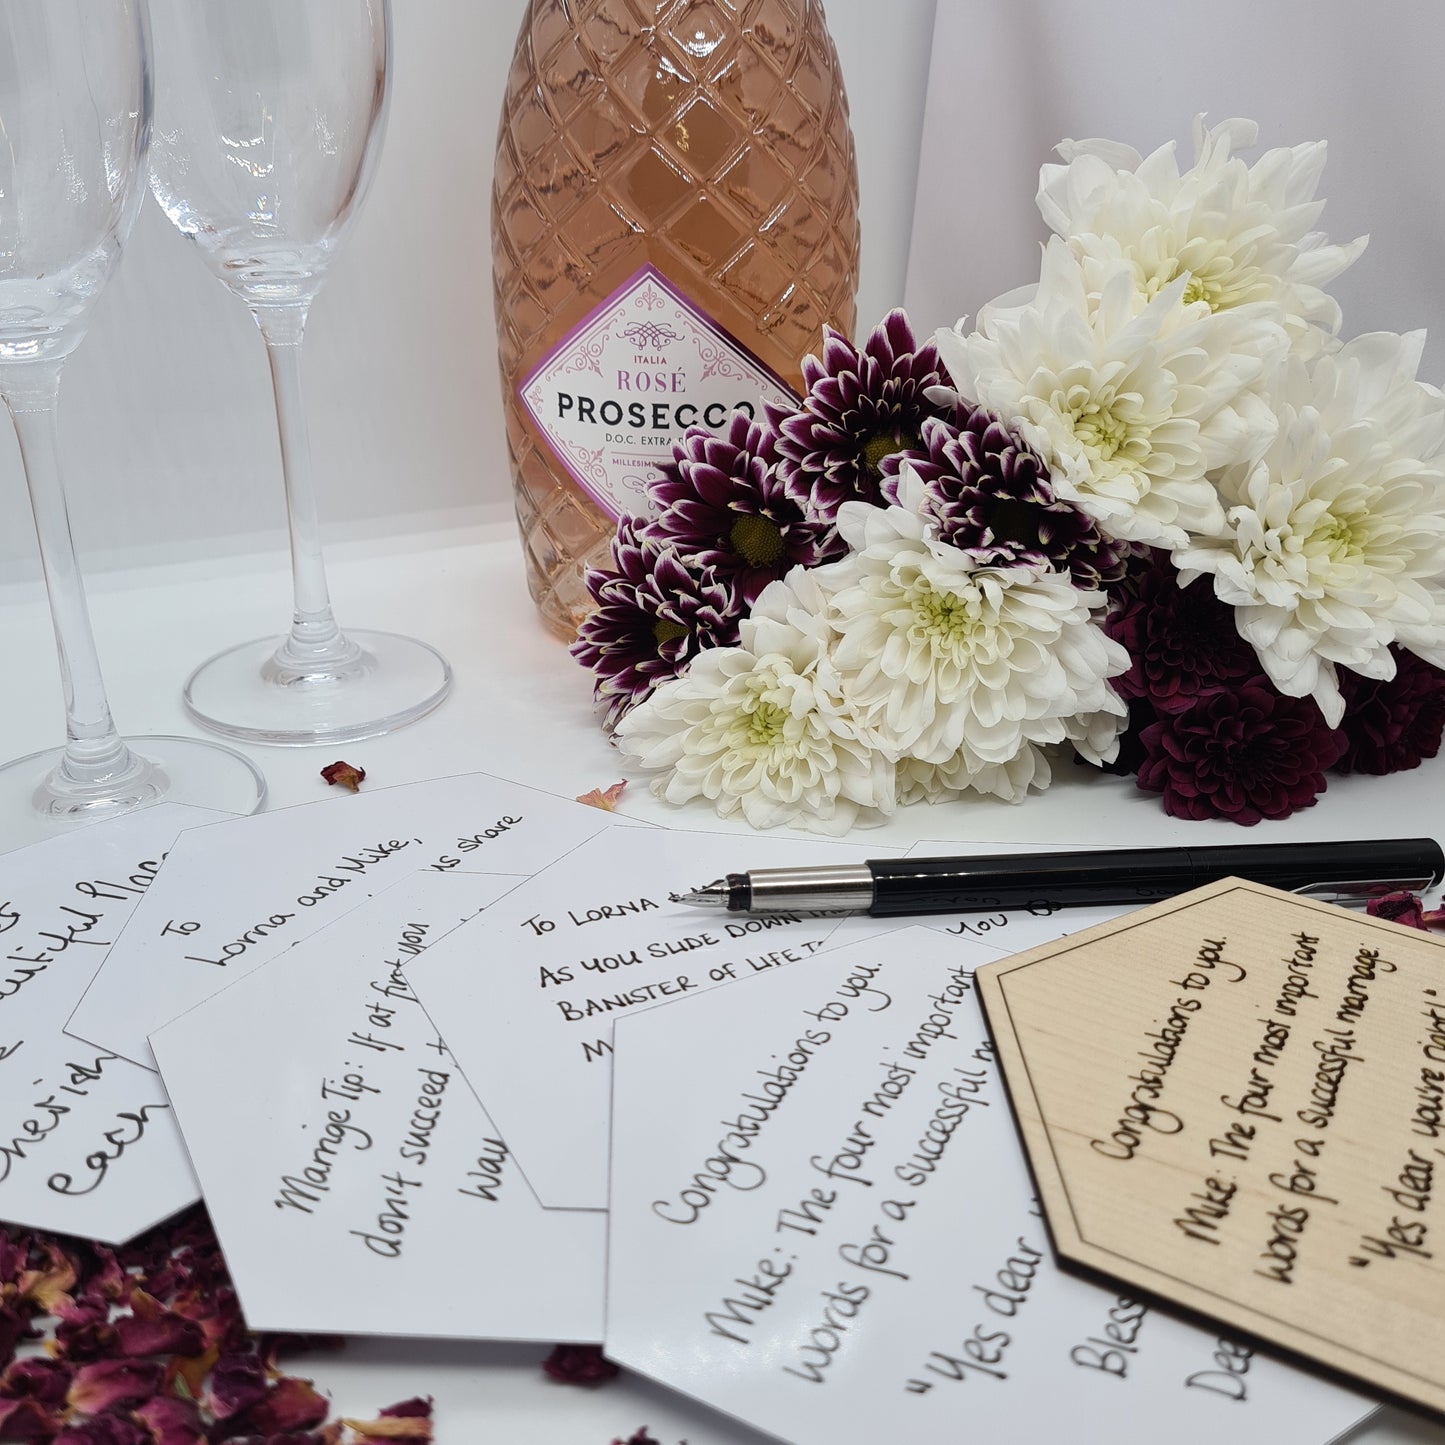 ITALIA
ROSÉ
PROSECCO
D.O.C. EXTRA
To
Lorna and Mike,
us share
Cherish
each
Marriage Tip: If at first you
don't succeed
way
To LORNA
AS YOU SLIDE DOWN
BANISTER OF LIFE
YOU
Congratulations to you.
Mike: The four most important
words for a successful
"Yes dear
Bless
Congratulations to you.
Mike: The four most important
words for a successful marriage:
"Yes dear you're right!"